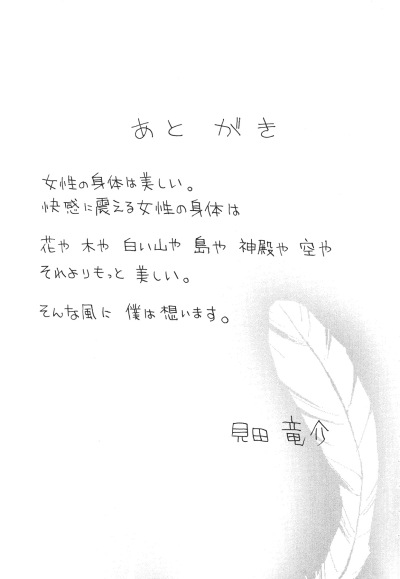 あとがき
女性の身体は美しい。
快感に震える女性の身体は
花や 木や 白い山や 島や 神殿や 空や
それよりもっと 美しい。
そんな風に 僕は想います。
見田 竜介